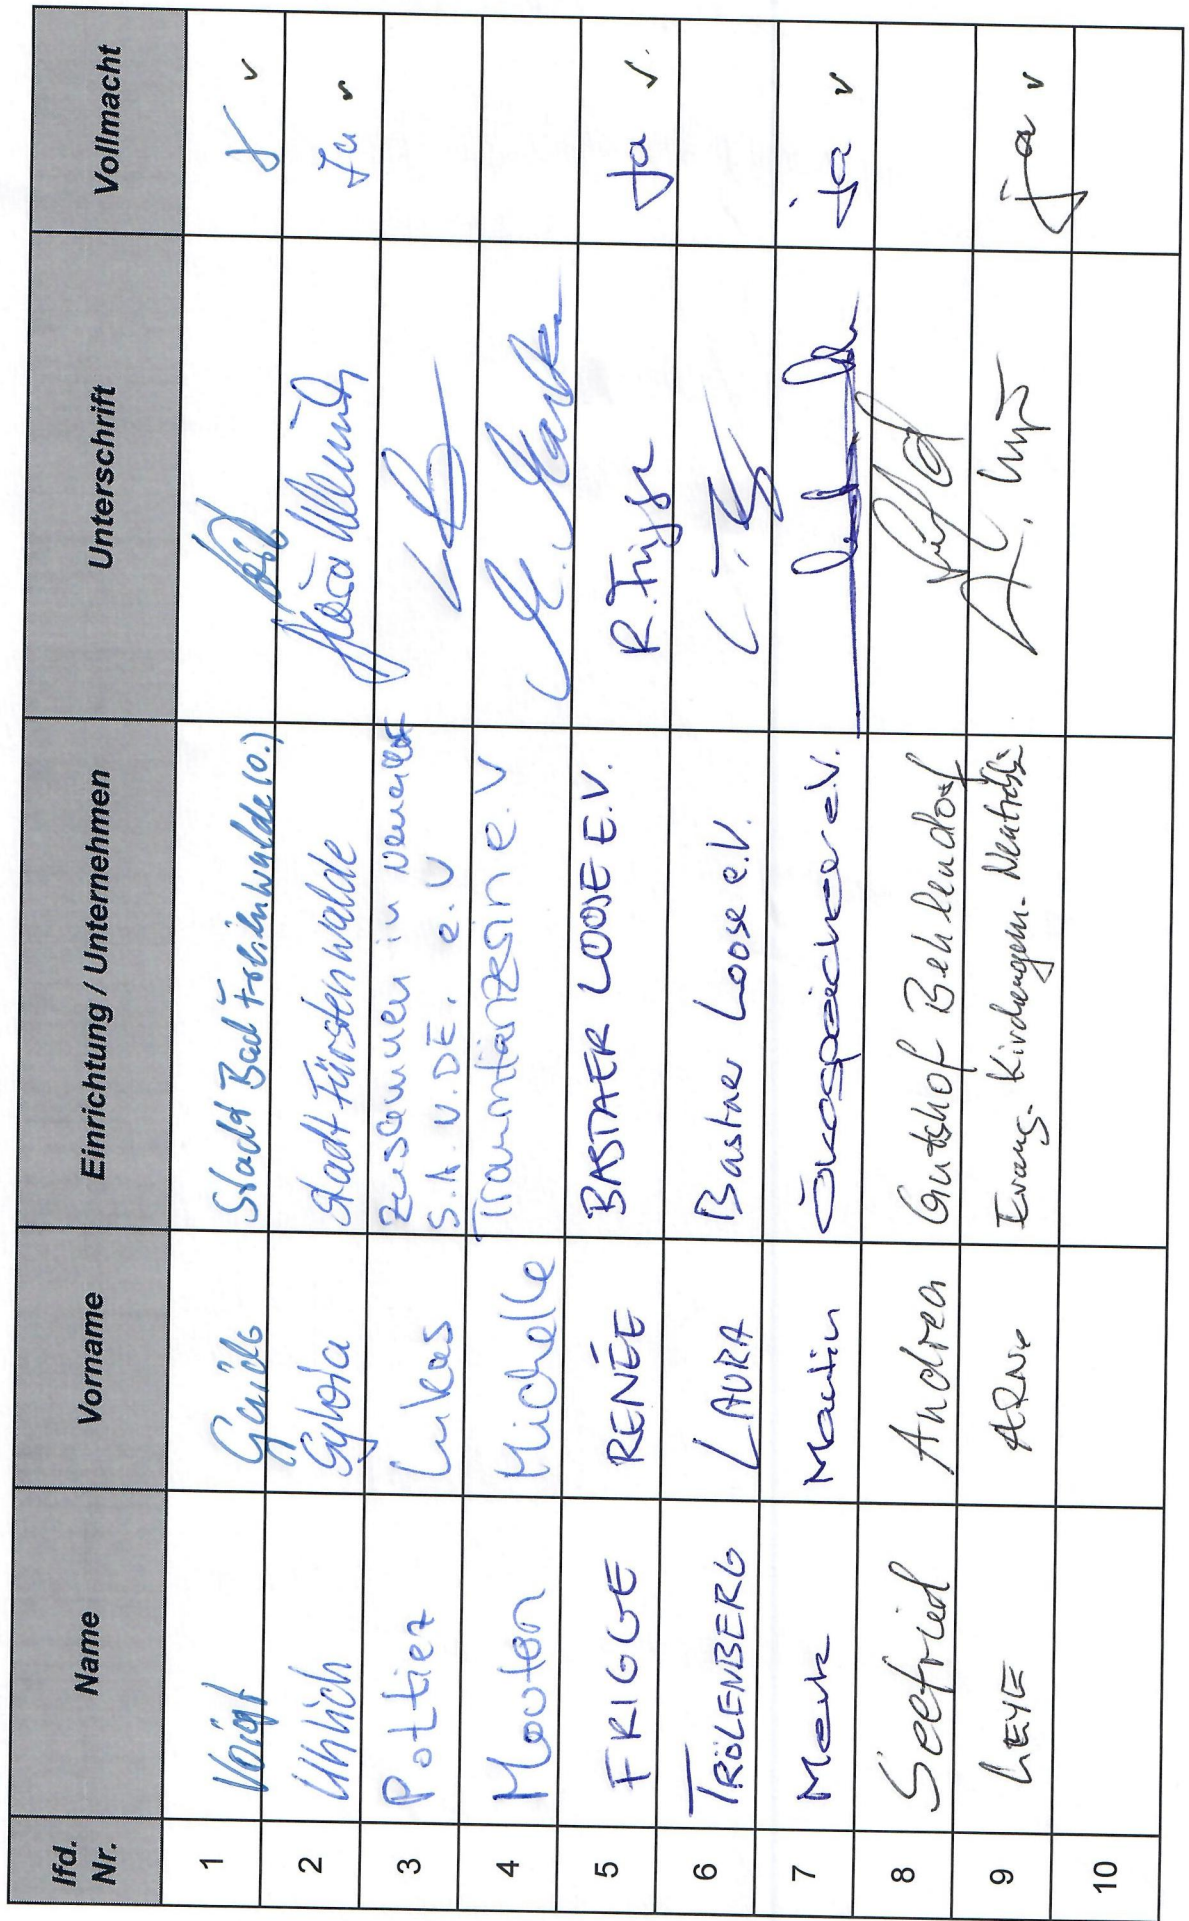 lfd. Nr. Name Vorname Einrichtung / Unternehmen Unterschrift Vollmacht
1 Voigt Guido Stadt Bad Freienwalde (O.) v
2 Uhlich Sylvia Stadt Fürstenwalde Ja v
3 Pottier Lukas Zusammen in Neuenhagen
S.A.U.DE. e.V
4 Mouton Michelle Tramontanzesin e.V
5 FRIGGE RENÉE BASTAER LOOSE E.V. R. Frigge Ja v.
6 TRÖLENBERG LAURA Bastaer Loose e.V.
7 Merk Martin Ökospeicher e.V. ja v
8 Seefried Andrea Gutshof Behlendorf
9 LEYE ARNE Evang. Kirchengem. Ja v
10